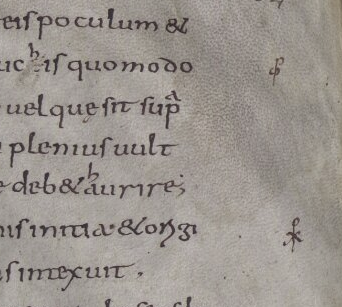 eis poculum &
uc his quomodo
uel quę sit supra
plenius uult
deb& haurire;
initia & origi
intexuit.